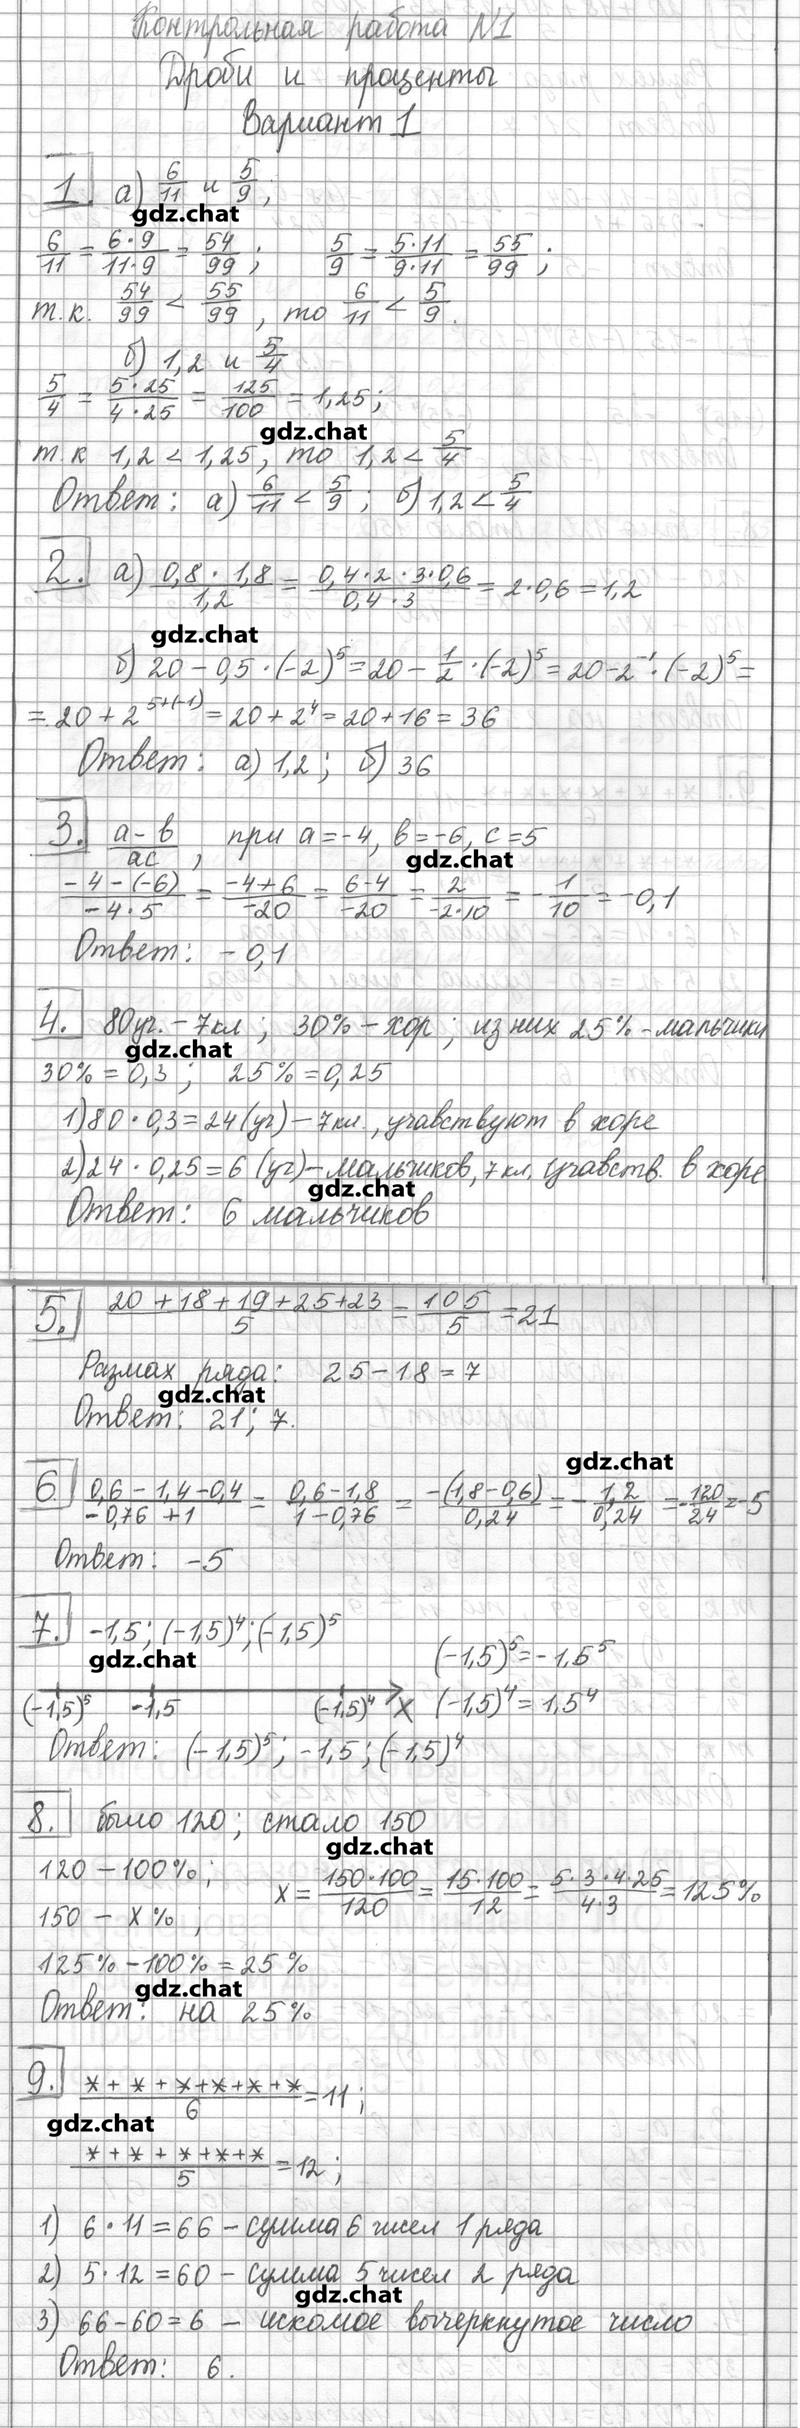 Контрольная работа №1
Дроби и проценты
Вариант 1
1. а) 6/11 и 5/9;
gdz.chat
6/11 = 6·9/11·9 = 54/99; 5/9 = 5·11/9·11 = 55/99;
т.к. 54/99 < 55/99, то 6/11 < 5/9.
б) 1,2 и 5/4
5/4 = 5·25/4·25 = 125/100 = 1,25;
gdz.chat
т.к 1,2 < 1,25, то 1,2 < 5/4
Ответ: а) 6/11 < 5/9; б) 1,2 < 5/4
2. а) 0,8·1,8/1,2 = 0,4·2·3·0,6/0,4·3 = 2·0,6 = 1,2
gdz.chat
б) 20 - 0,5·(-2)^5 = 20 - 1/2·(-2)^5 = 20 - 2^-1·(-2)^5 =
= 20 + 2^5+(-1) = 20 + 2^4 = 20 + 16 = 36
Ответ: а) 1,2; б) 36
3. a-b/ac, при a = -4, b = -6, c = 5
gdz.chat
-4-(-6)/-4·5 = -4+6/-20 = 6-4/-20 = 2/-2·10 = -1/10 = -0,1
Ответ: -0,1
4. 80уч. - 7кл; 30% - хор; из них 25% - мальчики
gdz.chat
30% = 0,3; 25% = 0,25
1) 80·0,3 = 24 (уч) - 7кл., учавствуют в хоре
2) 24·0,25 = 6 (уч) - мальчиков, 7 кл. учавств. в хоре
gdz.chat
Ответ: 6 мальчиков
5. 20+18+19+25+23/5 = 105/5 = 21
Размах ряда: 25-18 = 7
gdz.chat
Ответ: 21; 7.
gdz.chat
6 0,6-1,4-0,4/-0,76+1 = 0,6-1,8/1-0,76 = -(1,8-0,6)/0,24 = -1,2/0,24 = -120/24 = -5
Ответ: -5
7. -1,5; (-1,5)^4; (-1,5)^5
gdz.chat
(-1,5)^5 = -1,5^5
(-1,5)^5 -1,5 (-1,5)^4 x (-1,5)^4 = 1,5^4
Ответ: (-1,5)^5; -1,5; (-1,5)^4
8. было 120; стало 150
gdz.chat
120 - 100%; x = 150·100/120 = 15·100/12 = 5·3·4·25/4·3 = 125%
150 - x%;
125% - 100% = 25%
gdz.chat
Ответ: на 25%
9. *+*+*+*+*+*/6 = 11;
gdz.chat
*+*+*+*+*/5 = 12;
1) 6·11 = 66 - сумма 6 чисел 1 ряда
2) 5·12 = 60 - сумма 5 чисел 2 ряда
gdz.chat
3) 66-60 = 6 - искомое вычеркнутое число
Ответ: 6.